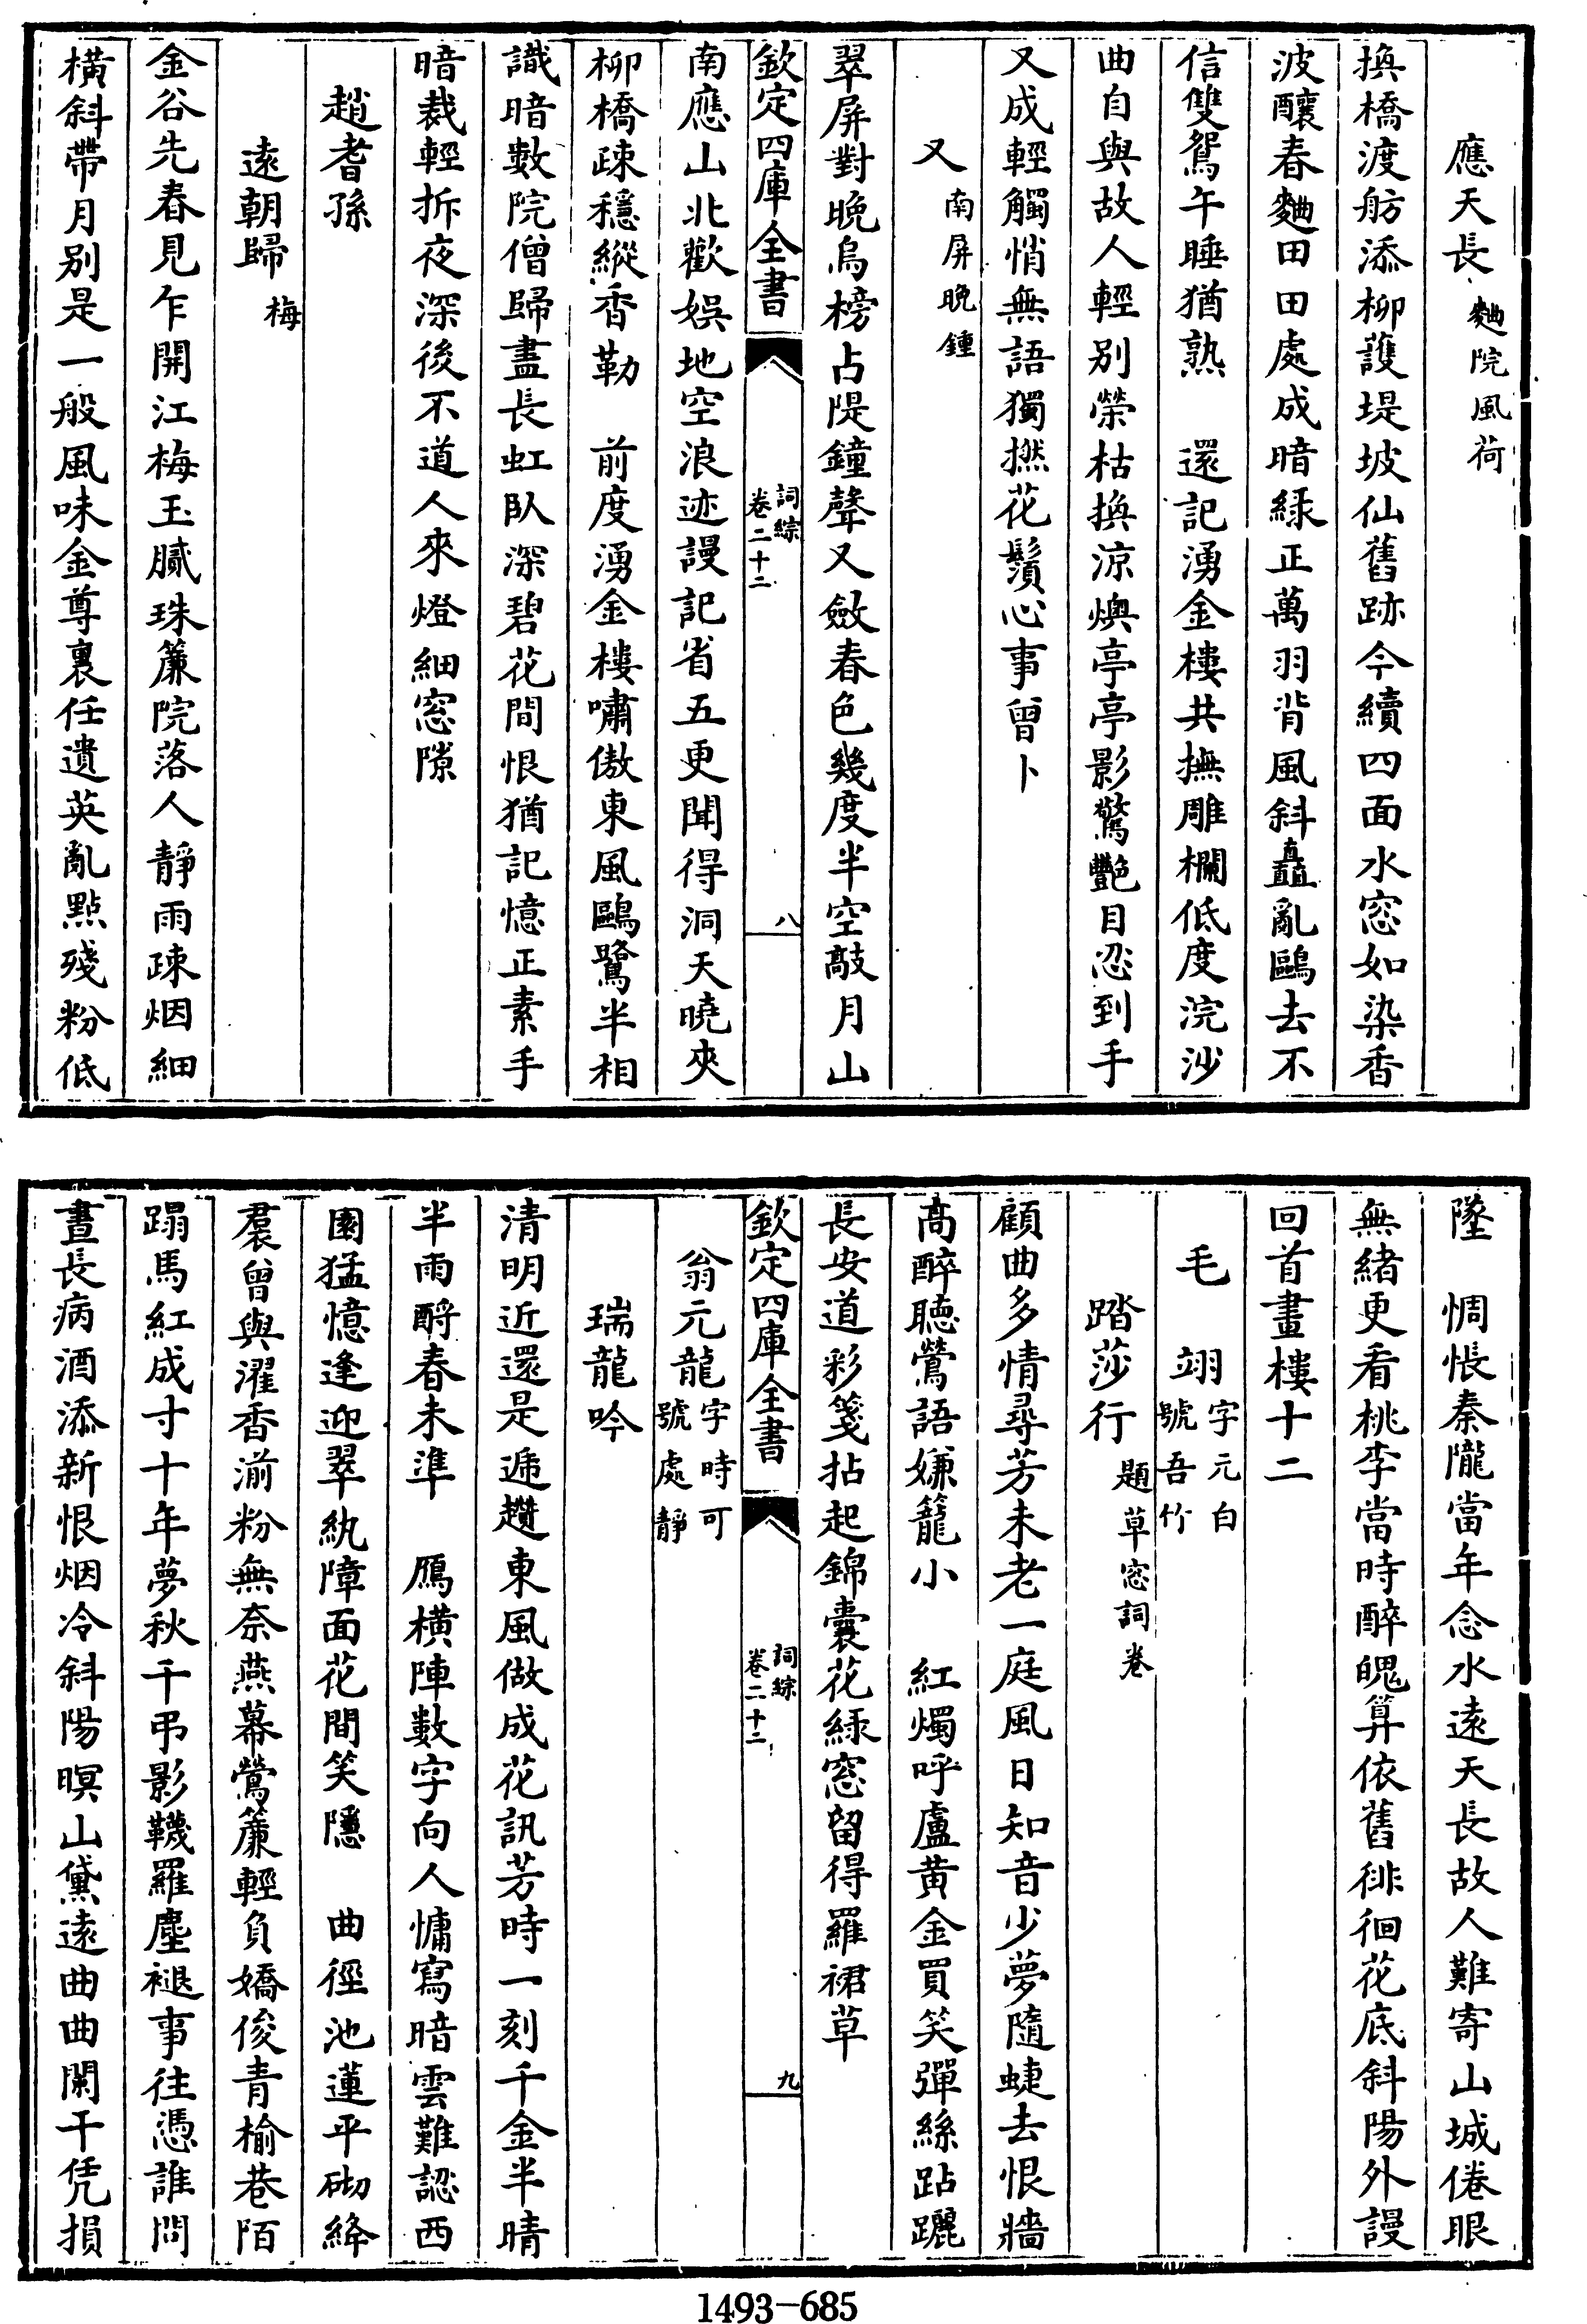 應天長麯院風荷
換橋渡舫添柳護堤坡仙舊跡今續四面水窓如染香
波釀春麯田田處成暗緑正萬羽背風斜矗亂鷗去不
信雙鴛午睡猶熟　還記湧金樓共撫雕欄低度浣沙
曲自與故人輕别榮枯換涼燠亭亭影驚艷目忍到手
又成輕觸悄無語獨撚花鬚心事曾卜
又南屏晩鍾
翠屏對晩烏榜占隄鐘聲又斂春色幾度半空敲月山
欽定四庫全書　詞綜卷二十二　八
南應山北歡娛地空浪迹謾記省五更聞得洞天曉夾
柳橋疎穩縱香勒　前度湧金樓嘯傲東風鷗鷺半相
識暗數院僧歸盡長虹臥深碧花間恨猶記憶正素手
暗裁輕拆夜深後不道人來燈細窓隙
趙耆孫
遠朝歸梅
金谷先春見乍開江梅玉膩珠簾院落人靜雨疎烟細
橫斜帶月别是一般風味金尊裏任遺英亂點殘粉低
墜　惆悵秦隴當年念水遠天長故人難寄山城倦眼
無緒更看桃李當時醉魄算依舊徘徊花底斜陽外謾
回首畫樓十二
毛　翊字元白號吾竹
踏莎行題草窓詞卷
顧曲多情尋芳未老一庭風日知音少夢隨蜨去恨牆
高醉聽鶯語嫌籠小　紅燭呼盧黄金買笑彈絲跕躧
長安道彩箋拈起錦囊花緑窓留得羅裙草
欽定四庫全書　詞綜卷二十二　九
翁元龍字時可號處靜
瑞龍吟
清明近還是遞趲東風做成花訊芳時一刻千金半晴
半雨酧春未準　鴈横陣數字向人慵寫暗雲難認西
園猛憶逢迎翠紈障面花間笑隱　曲徑池蓮平砌絳
裠曾與濯香湔粉無奈燕幕鶯簾輕負嬌俊青榆巷陌
蹋馬紅成寸十年夢秋千弔影韈羅塵褪事往憑誰問
晝長病酒添新恨烟冷斜陽暝山黛遠曲曲闌干凭損
1493—685